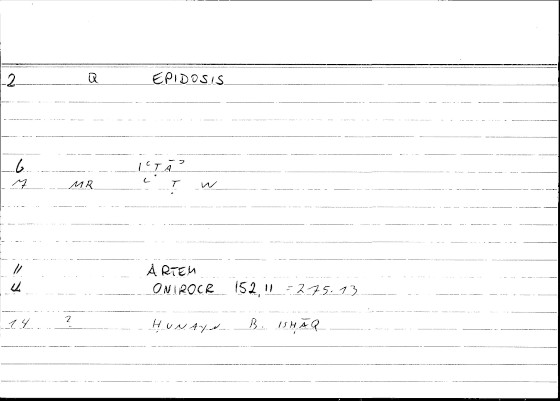 2 Q EPIDOSIS
6 IʿṬĀʾ
7 MR ʿ Ṭ W
11 ARTEM
4 ONIROCR 152,11 = 275.13
14 ? ḤUNAYN B. ISḤĀQ